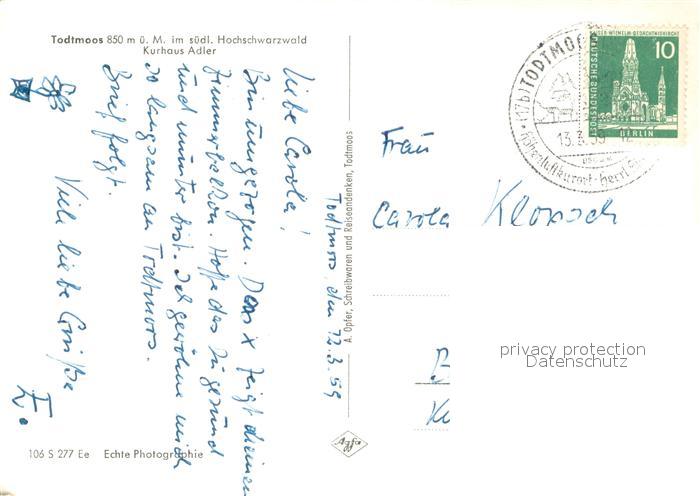 Todtmoos 850 m ü. M. im südl. Hochschwarzwald
Kurhaus Adler
Todtmoos, den 12.3.59
Liebe Carola!
Bin umgezogen. Das x zeigt meinen
Zimmerbalkon. Hoffe das Du gesund
und munter bist. Ich gewöhne mich
so langsam an Todtmoos.
Brief folgt.
Viele liebe Grüße
E.
106 S 277 Ee Echte Photographie
A. Opfer, Schreibwaren und Reiseandenken, Todtmoos
Agfa
(17b) TODTMOOS
13.3.59
Höhenluftkurort
KAISER-WILHELM-GEDÄCHTNISKIRCHE
10
DEUTSCHE BUNDESPOST
BERLIN
Frau
Carola Klonsch
privacy protection
Datenschutz